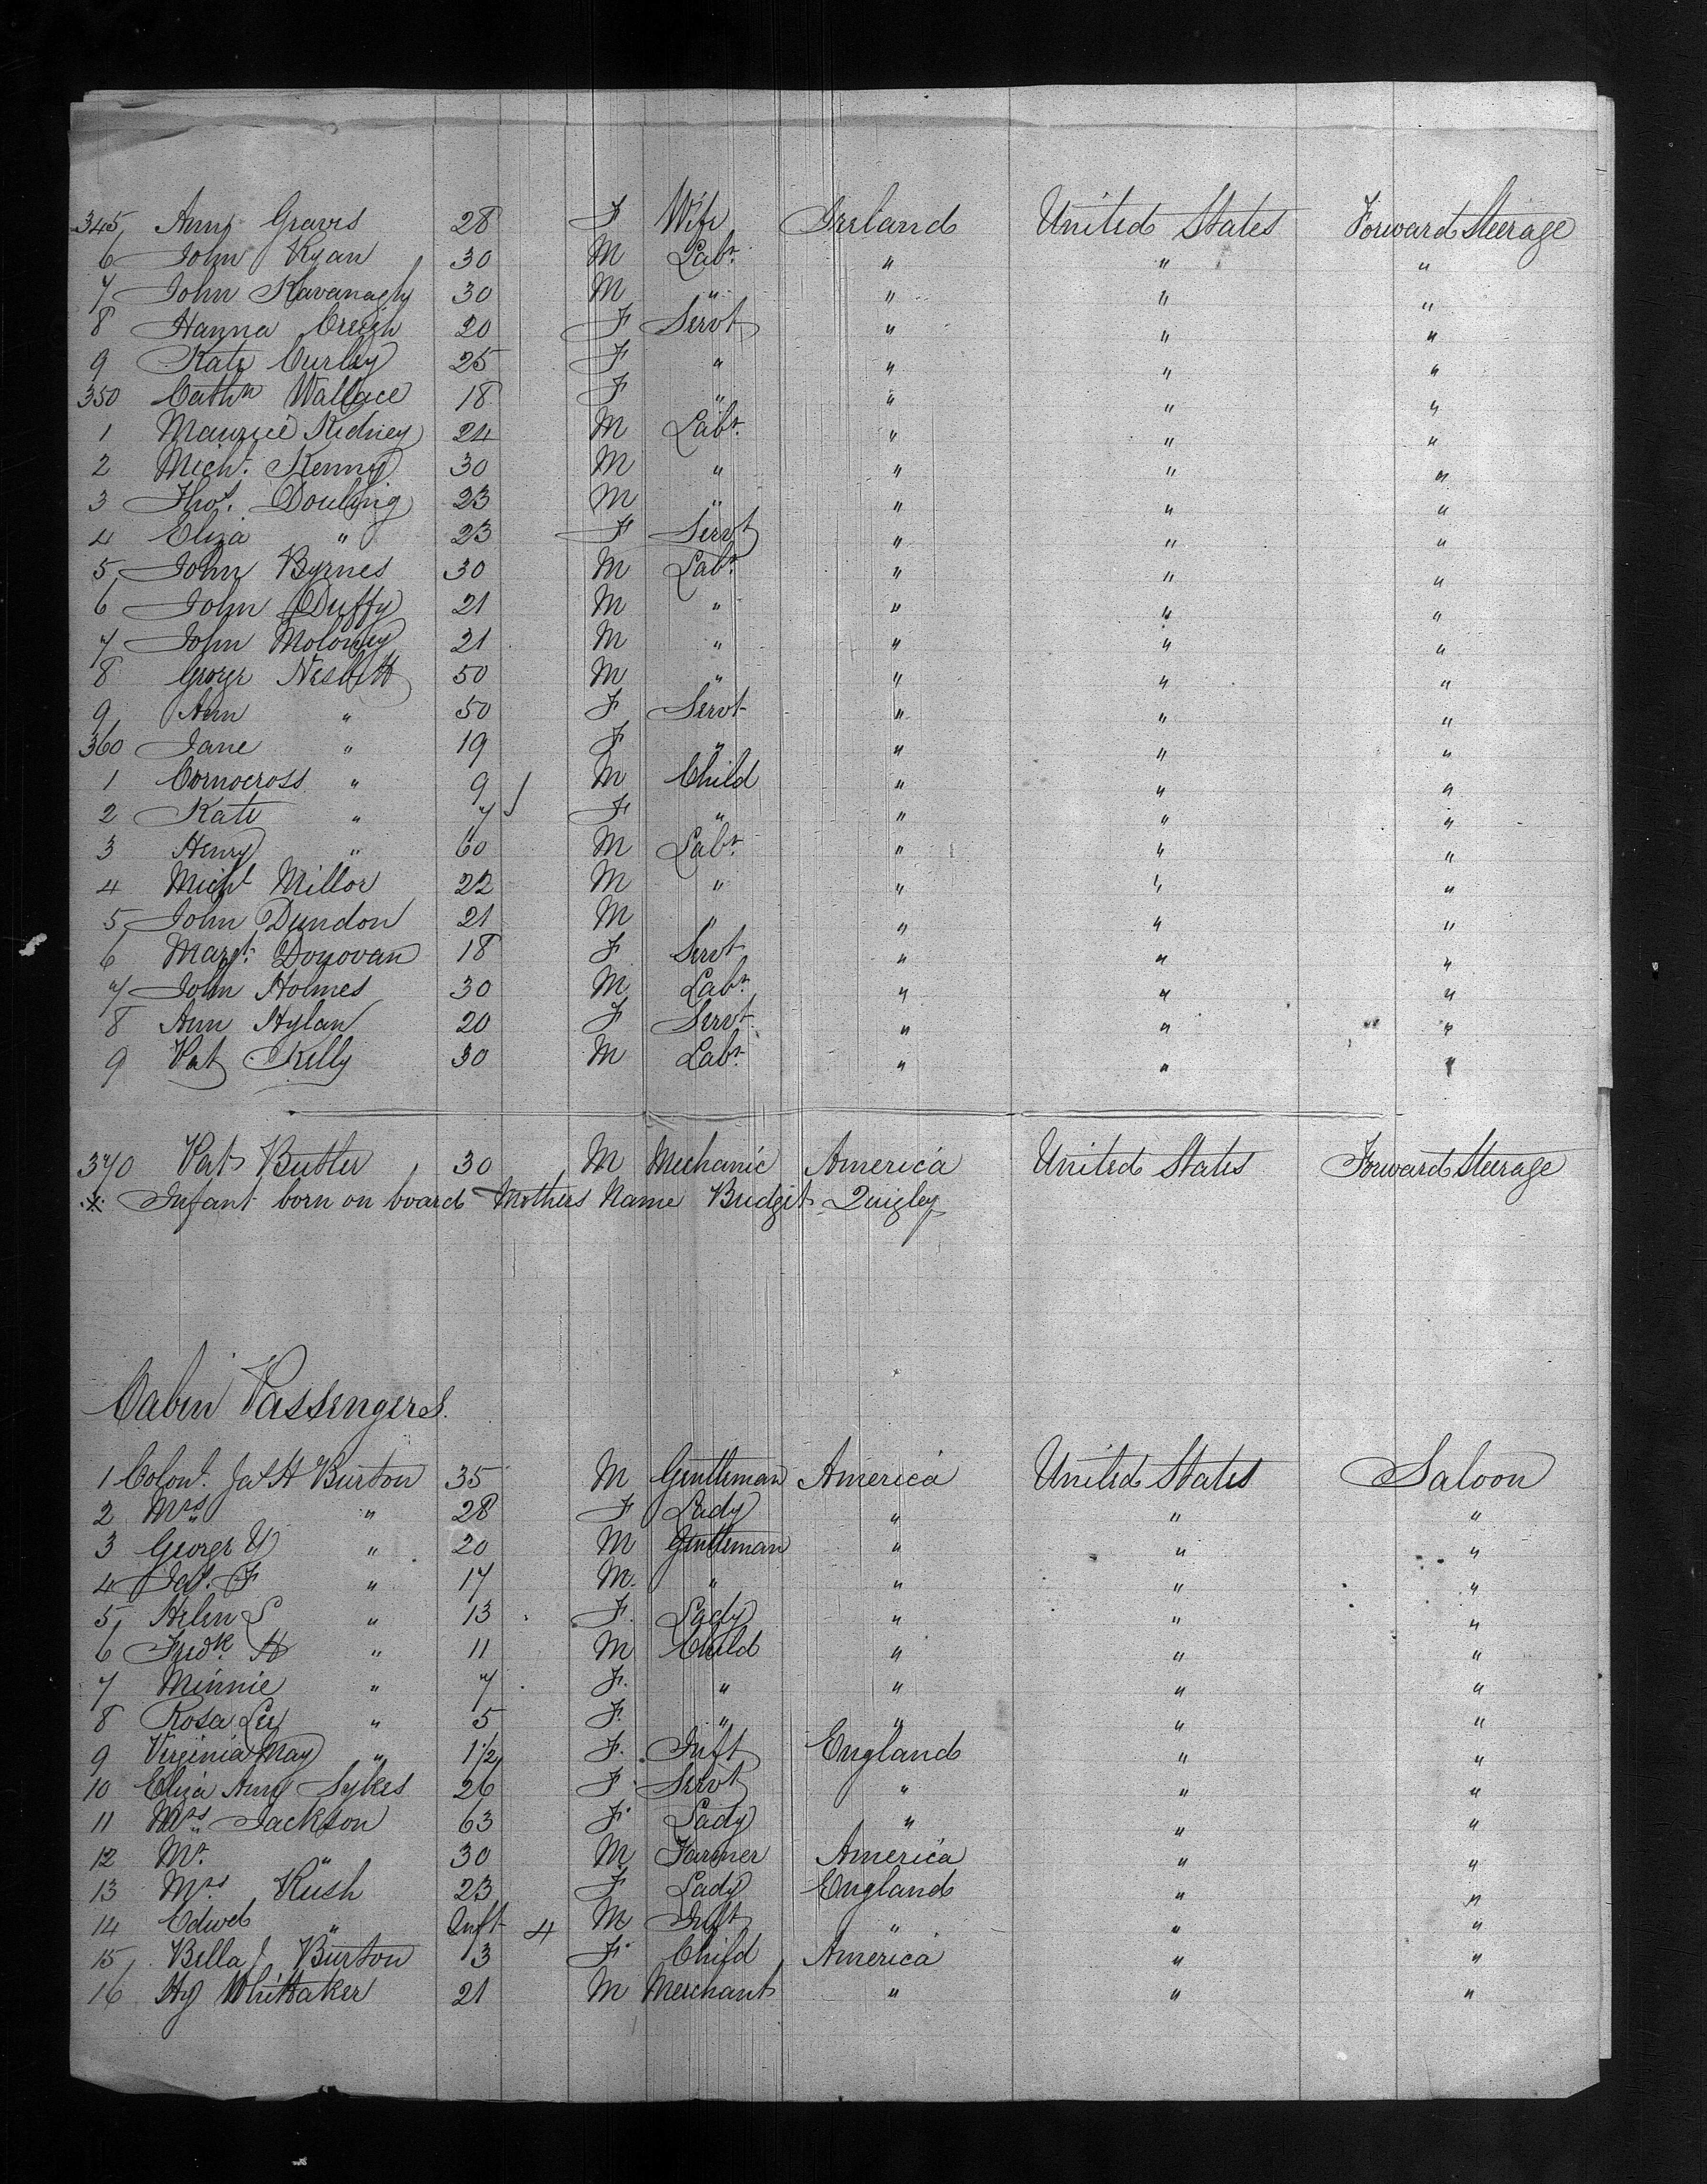 345 Ann Graves 28 F Wife Ireland United States Forward Steerage
6 John Ryan 30 M Labr. " " "
7 John Kavanagh 30 M " " " "
8 Hanna Creigh 20 F Servt " " "
9 Kate Curley 25 F " " " "
350 Cathn Wallace 18 F " " " "
1 Maurice Kidney 24 M Labr. " " "
2 Michl. Kenny 30 M " " " "
3 Thos. Douling 23 M " " " "
4 Eliza " 23 F Servt " " "
5 John Byrnes 30 M Labr. " " "
6 John Duffy 21 M " " " "
7 John Moloney 21 M " " " "
8 George Nesbitt 50 M " " " "
9 Ann " 50 F Servt " " "
360 Jane " 19 F " " " "
1 Cornocross " 9 M Child " " "
2 Kate " 7 F " " " "
3 Henry " 60 M Labr. " " "
4 Michl Millor 22 M " " " "
5 John Dundon 21 M " " " "
6 Margt. Donovan 18 F Servt " " "
7 John Holmes 30 M Labr. " " "
8 Ann Hylan 20 F Servt. " " "
9 Pat Kelly 30 M Labr. " " "
370 Pat Butler 30 M Mechanic America United States Forward Steerage
Infant born on board Mothers Name Bridget Quigley
Cabin Passengers.
1 Colonl. Jas H Burton 35 M Gentleman America United States Saloon
2 Mrs " 28 F Lady " " "
3 George " 20 M Gentleman " " "
4 Jas. F " 17 M. " " " "
5 Helen S " 13 F. Lady " " "
6 Fredk. H " 11 M Child " " "
7 Minnie " 7 F. " " " "
8 Rosa Lee " 5 F. " " " "
9 Virginia May " 1 1/2 F. Inft England " "
10 Eliza Ann Sykes 26 F Servt " " "
11 Mrs Jackson 63 F Lady " " "
12 Mr. " 30 M Farmer America " "
13 Mrs. Rush 23 F Lady England " "
14 Edwd " Inft 4 M Inft " " "
15 Bella J Burton 13 F Child America " "
16 Hy Whittaker 21 M Merchant " " "